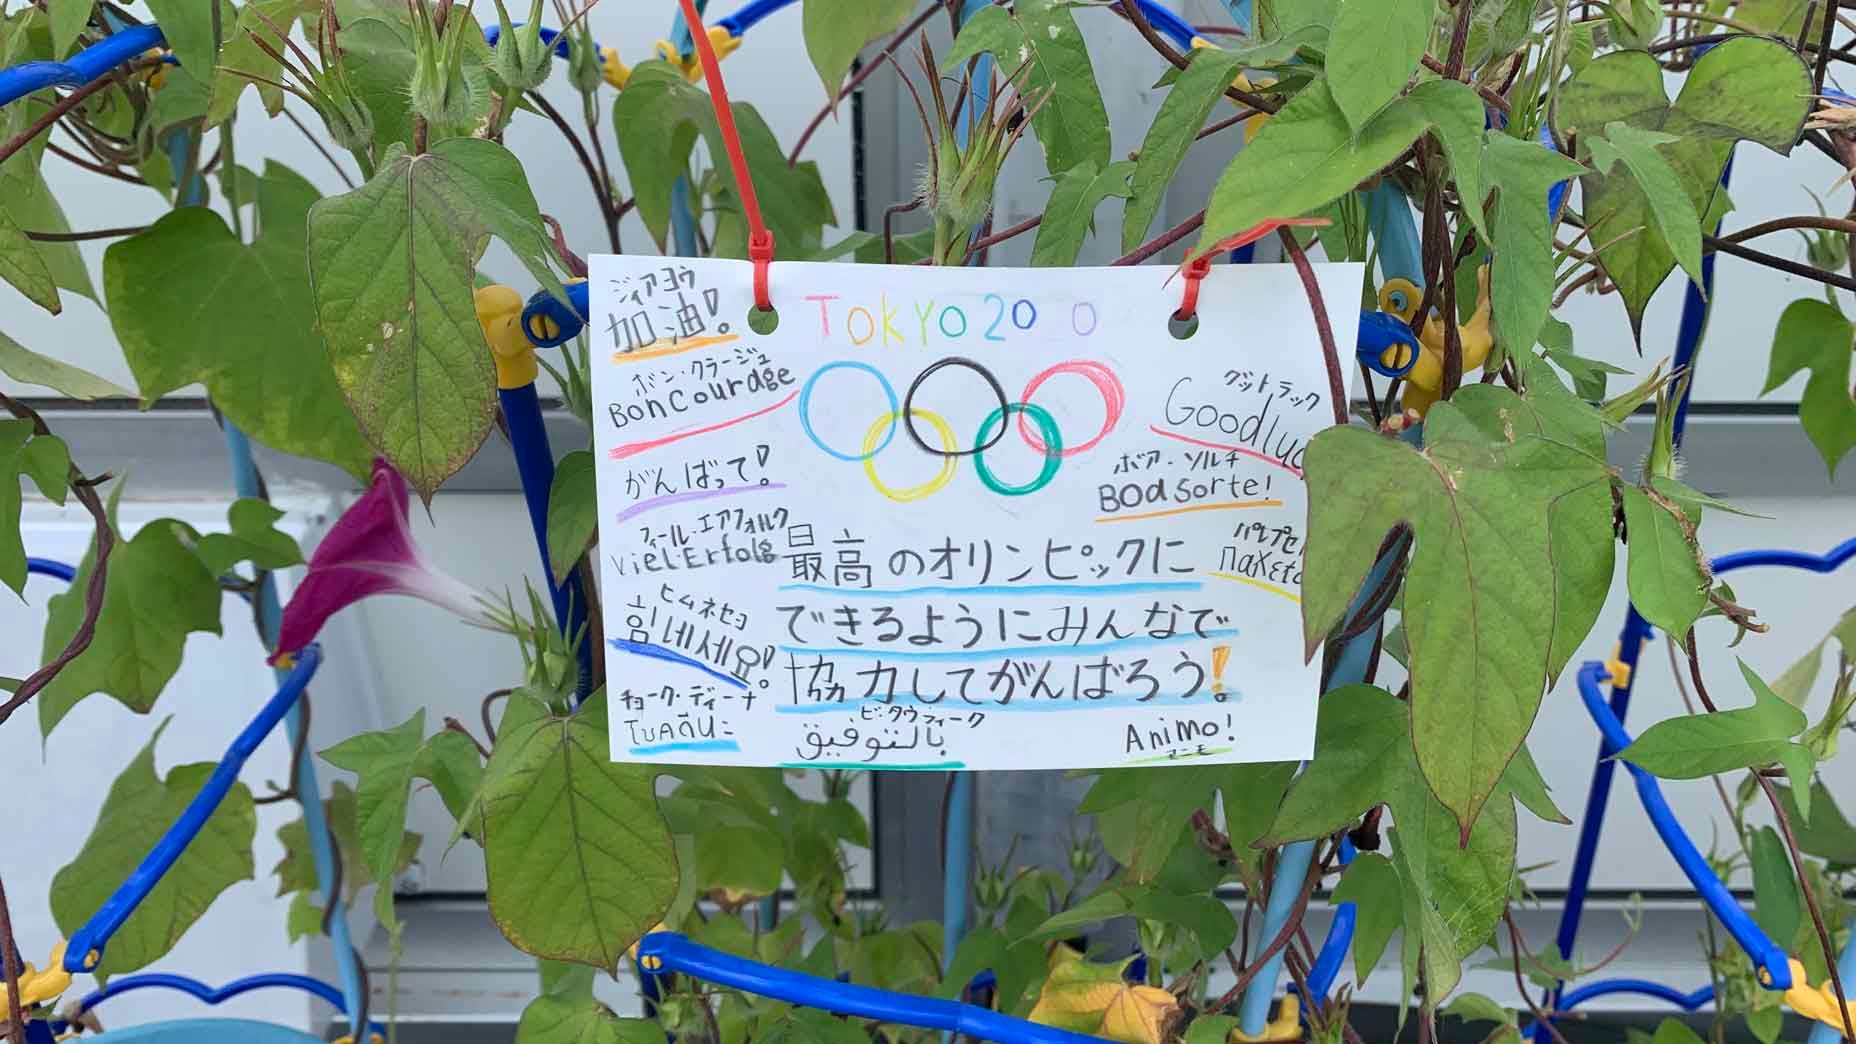 ジィアヨウ
加油!
TOKYO2020
ボン・クラージュ
Bon Courage
グットラック
Good luc
がんばって!
ボア・ソルチ
BOa sorte!
フィール・エアフォルク
viel Erfolg
最高のオリンピックに
ヒムネセヨ
힘내세요!
できるようにみんなで
協力してがんばろう!
チョーク・ディーナ
بالتوفيق
Animo!
アニモ